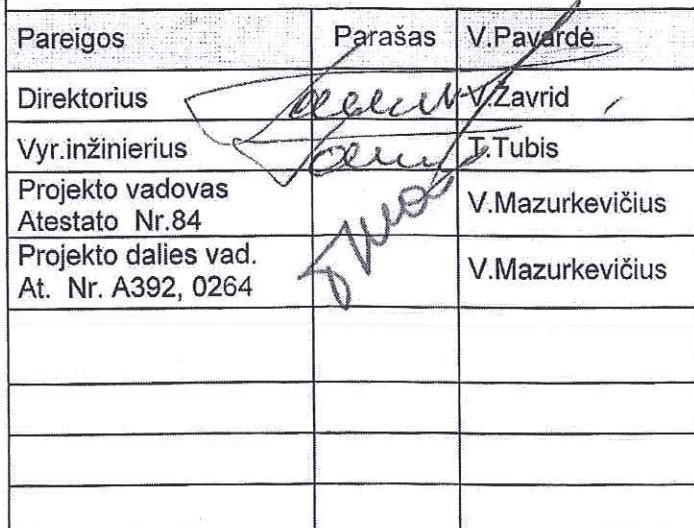 Pareigos Parašas V.Pavardė
Direktorius V.Zavrid
Vyr.inžinierius T.Tubis
Projekto vadovas
Atestato Nr.84 V.Mazurkevičius
Projekto dalies vad.
At. Nr. A392, 0264 V.Mazurkevičius